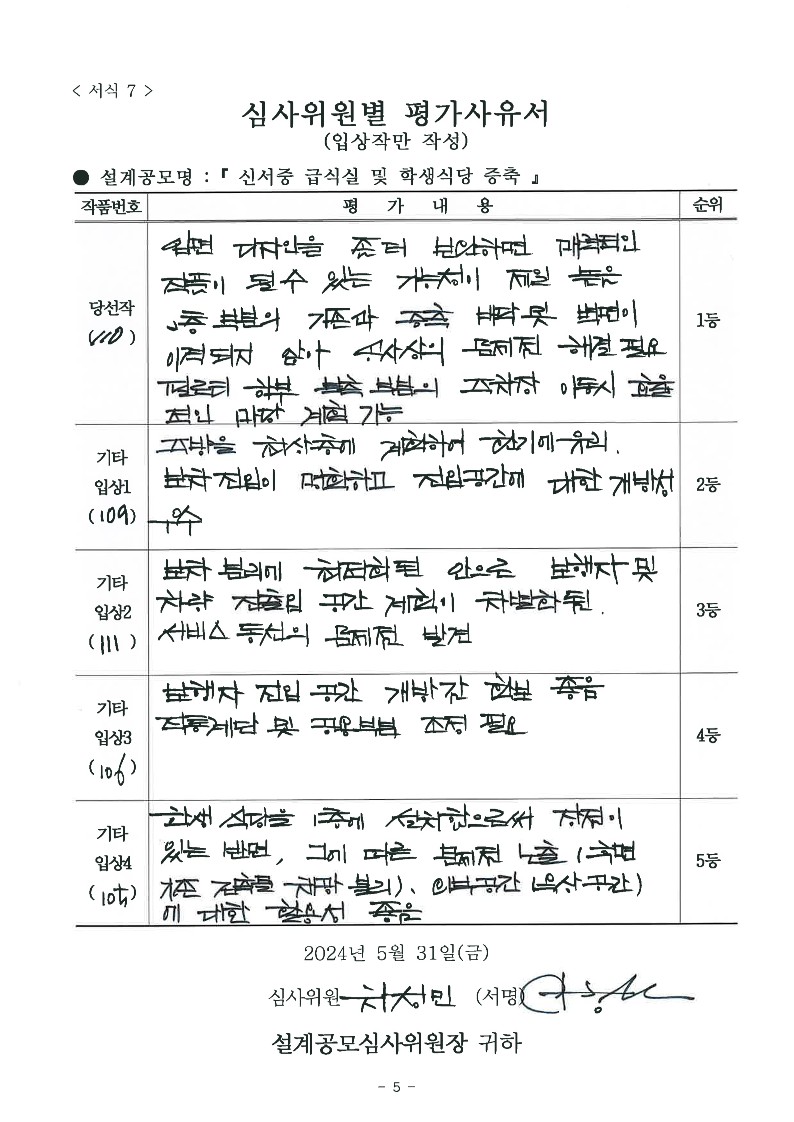 < 서식 7 >
심사위원별 평가사유서
(입상작만 작성)
● 설계공모명 : 『 신서중 급식실 및 학생식당 증축 』
작품번호 평 가 내 용 순위
당선작
(110)
입면 디자인을 좀 더 보완하면 매력적인
작품이 될 수 있는 가능성이 제일 높음
2층 부분의 기존과 증축 바닥 및 벽면이
이격되지 않아 공사상의 문제점 해결 필요
필로티 하부 북측 부분의 주차장 이동시 효율
적인 마당 계획 가능
1등
기타
입상1
(109)
주방을 최상층에 계획하여 환기에 유리.
보차진입이 명확하고 진입공간에 대한 개방성
우수
2등
기타
입상2
(111)
보차 분리에 최적화된 안으로 보행자 및
차량 진출입 공간 계획이 차별화됨.
서비스 동선의 문제점 발견
3등
기타
입상3
(106)
보행자 진입 공간 개방감 확보 좋음
직통계단 및 공용부분 조정 필요
4등
기타
입상4
(105)
학생 식당을 1층에 설치함으로써 장점이
있는 반면, 그에 따른 문제점 노출 (후면
기존 건축물 채광 불리). 외부공간 (옥상공간)
에 대한 활용성 좋음
5등
2024년 5월 31일(금)
심사위원 차성민 (서명)
설계공모심사위원장 귀하
- 5 -